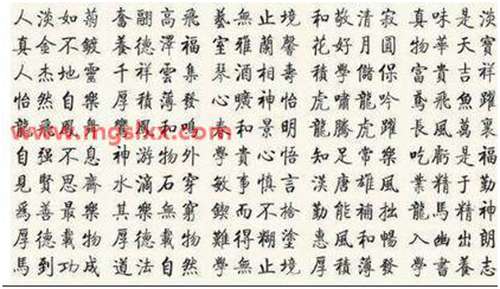 人淡如菊 奮翮高飛 藝無止境 和敬清寂 真味是淡
真金不鍍 養德澤福 室雅蘭馨 花好月圓 物華天寶
人杰地靈 千祥雲集 琴酒相壽 積學儲保 富貴吉祥
怡然自樂 厚積薄發 心曠神怡 虎嘯龍吟 鳶飛魚躍
龍飛鳳舞 鸞鳳和鳴 春和景明 龍騰虎躍 長風萬裏
www.mgslxx.com
自强不息 神游物外 知足常樂 吃虧是福
見賢思齋 水滴石穿 敏事慎言 漢唐雄風 業精于勤
爲善最樂 其樂無窮 鍥而不捨 勤能補拙 龍馬精神
厚德載物 難得糊塗 惠風和暢 入幽出朗
馬到功成 道法自然 學無止境 厚積薄發 學書養志